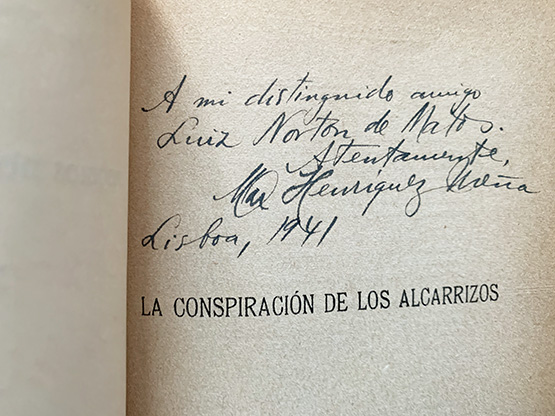 A mi distinguido amigo
Luiz Norton de Matos.
Atentamente,
Max Henríquez Ureña
Lisboa, 1941
LA CONSPIRACIÓN DE LOS ALCARRIZOS